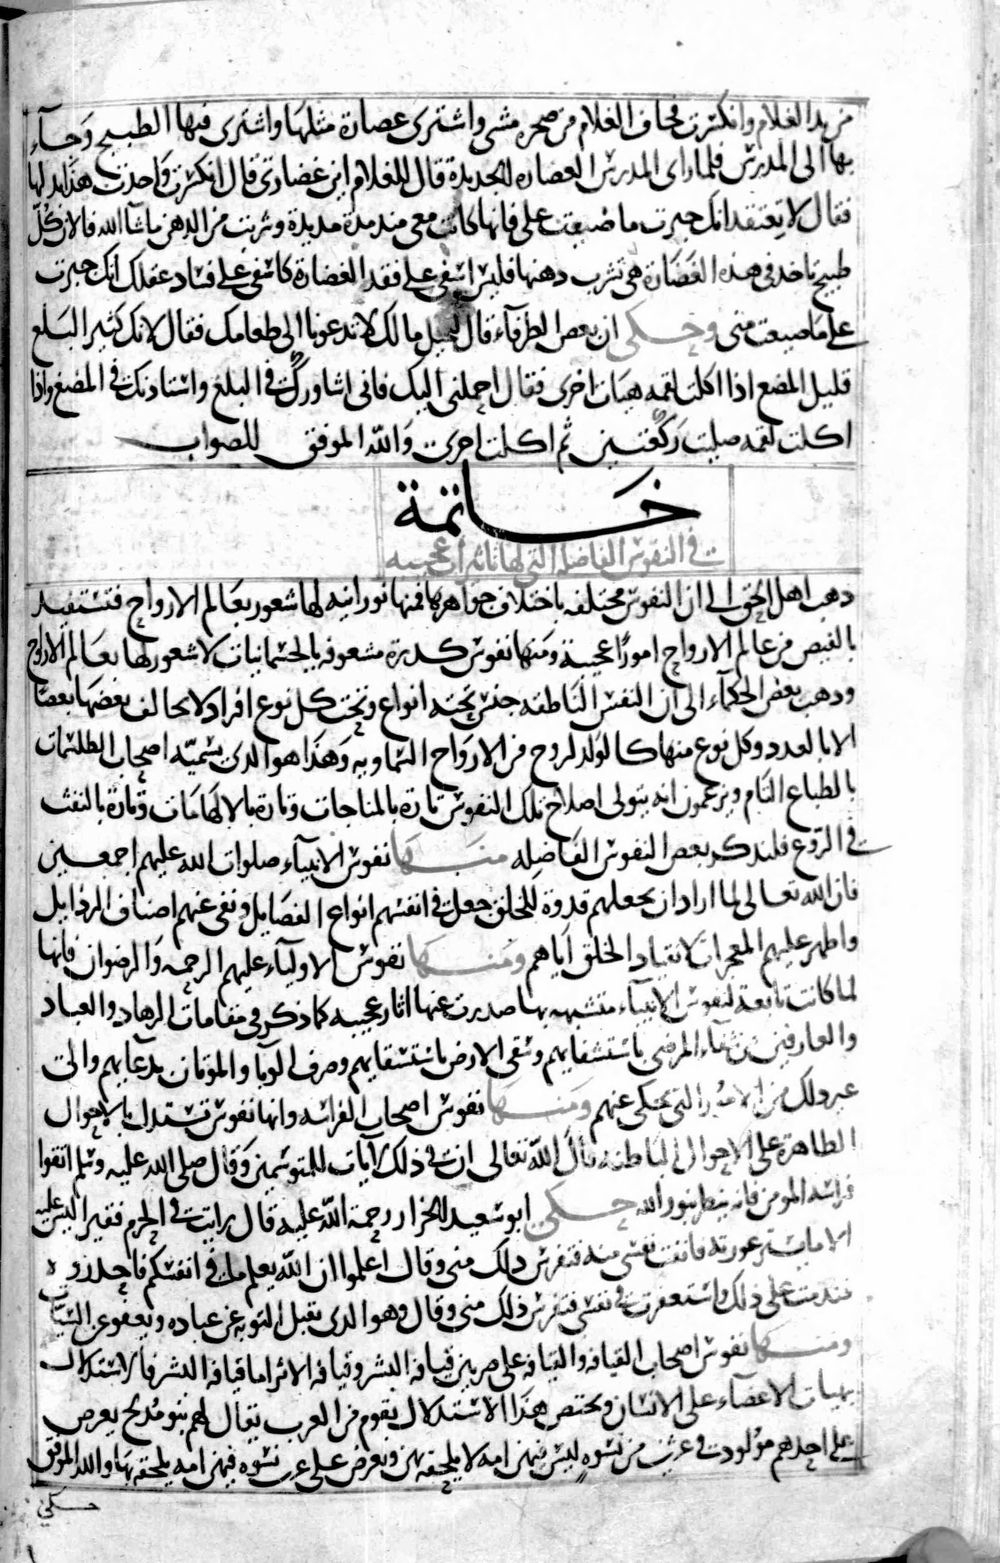 من يد الغلام وانكسرت فخاف الغلام من صحره مشى واشترى عصارة مثلها واشترى فيها الطبيخ وجآء
بها الى المدرس فلما راى المدرس العصاره الجديدة قال للغلام اين غضارتى قال انكسرت واخذت هذا بدلها
فقال لا تعتقد انك جبرت ما ضيعت على فانها كانت معى منذ مدة مديدة وشربت من الدهن ما شآ الله فالان كل
طبيخ ناخد فى هذه الغضارة هى تشرب دهنها فليس اسفى على فقد الغضارة كاسفى على فساد عقلك انك جبرت
على ما ضيعت منى وحكى ان بعض الظرفآء قال لبخيل مالك لا تدعونا الى طعامك فقال لانك كثير البلع
قليل المضع اذا اكلت لقمه هيات اخرى فقال احملنى اليك فانى اشاورك فى البلع واستاذنك فى المضغ واذا
اكلت لقمه صليت ركعتين ثم اكلت اخرى والله الموفق للصواب
خاتمة
فى النفوس الفاضله التى لها تاثيرات عجيبه
ذهب اهل الحق الى ان النفوس مختلفه باختلاف جواهرها فمنها نورانيه لها شعور بعالم الارواح فتستفيد
بالفيض من عالم الارواح امورًا عجيبة ومنها نفوس كدرة مشعوفه بالجسمانيات لا شعور لها بعالم الارواح
وذهب بعض الحكمآء الى ان النفس الناطقه جنس تحته انواع وتحت كل نوع افراد لا يخالف بعضها بعضا
الا بالعدد وكل نوع منها كالولد لروح من الارواح السماويه وهذا هو الذى يسميه اصحاب الطلسمات
بالطباع التام ويزعمون انه يتولى اصلاح تلك النفوس تارة بالمناجات وتارة بالالهامات وتارة بالنفث
فى الروع فلنذكر بعض النفوس الفاضله منها نفوس الانبيآء صلوات الله عليهم اجمعين
فان الله تعالى لما اراد ان يجعلهم قدوة للخلق جعل فى انفسهم انواع الفضايل ونفى عنهم اصناف الرذايل
واظهر عليهم المعجزات لانقياد الخلق اياهم ومنها نفوس الاوليآء عليهم الرحمه والرضوان فانها
لما كانت تابعة لنفوس الانبيآء متشبهه بها صدرت عنها اثار عجيبه كما ذكر فى مقامات الزهاد والعباد
والعارفين من شفآء المرضى باستشفايهم وسقى الارض باستسقايهم وصرف الوبا والموتان بدعايهم والى
غير ذلك من الامور التى تحكى عنهم ومنها نفوس اصحاب الفراسه وانها نفوس تستدل بالاحوال
الظاهرة على الاحوال الباطنه قال الله تعالى ان فى ذلك لآيات للمتوسمين وقال صلى الله عليه وسلم اتقوا
فراسة المومن فانه ينظر بنور الله حكى ابو سعيد الخراز رحمة الله عليه قال رايت فى الحرم فقيرا ليس عليه
الا ما يستر عورته فانفت نفسى منه فتفرس ذلك منى وقال اعلموا ان الله يعلم ما فى انفسكم فاحذروه
فندمت على ذلك واستغفرت فى نفسى فتفرس ذلك منى وقال وهو الذى يقبل التوبه عن عباده ويعفو عن السيات
ومنها نفوس اصحاب القيافه والقيافه على ضربين قيافه البشر وقيافه الاثر اما قيافه البشر فالاستدلال
بهيات الاعضآء على الانسان ويختص هذا الاستدلال بقوم من العرب يقال لهم بنو مدلج يعرض
على احدهم مولود فى عشرين من نسوه ليس فيهن امه لا يلحقه بهن ويعرض على نسوه فيهن امه يلحقه بها والله الموفق
حكى